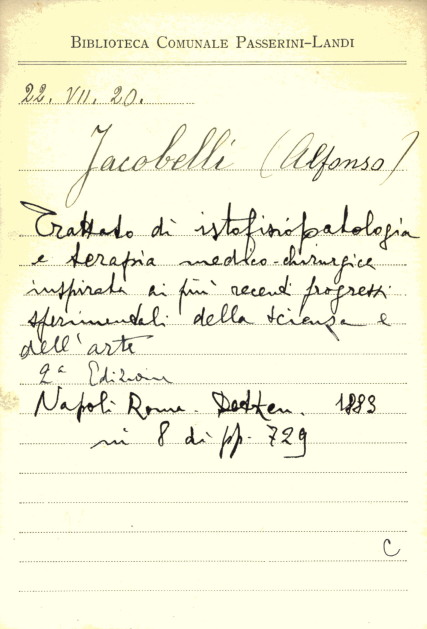 BIBLIOTECA COMUNALE PASSERINI-LANDI
22. VII. 20.
Jacobelli (Alfonso)
Trattato di istofisiopatologia
e terapia medico-chirurgica
inspirata ai più recenti progressi
sperimentali della scienza e
dell'arte
2ª Edizione
Napoli Roma. Detken. 1883
in 8 di pp. 729
C